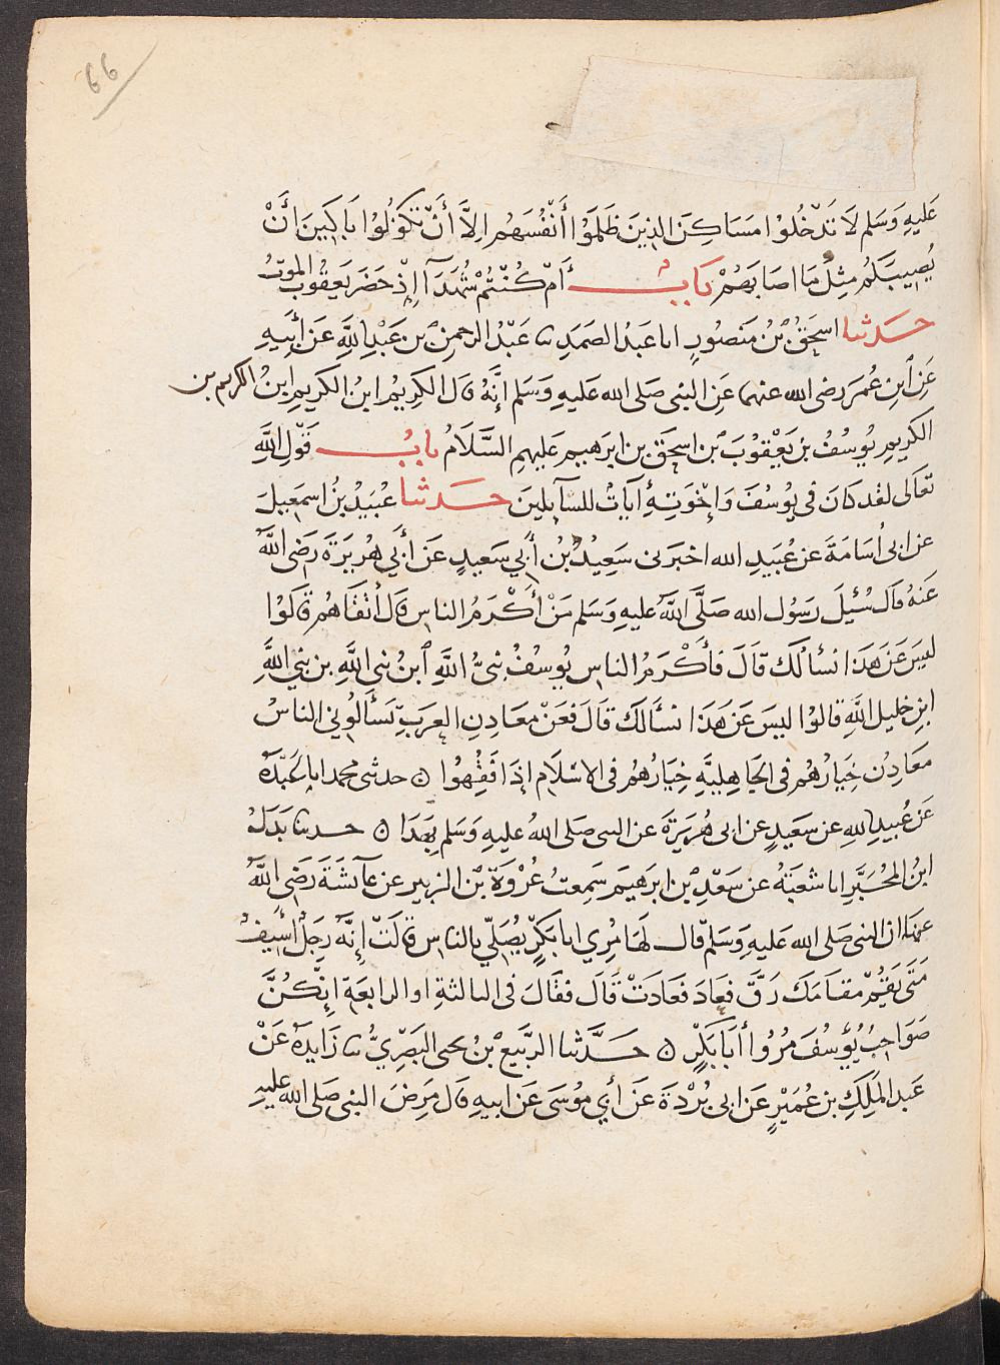 ٦٦
عَليهِ وَسَلم لاَ تَدْخُلُوا مَسَاكِنَ الذِينَ ظَلَمُوا أَنْفُسَهُم اِلَّا أَنْ تَكُونُوا بَاكِينَ أَنْ
يُصِيبَكُم مِثلُ مَا اصَابَهُمْ بَابُ أَمْ كُنْتُمْ شُهَدَآ إِذْ حَضَرَ يَعقُوبَ الموتُ
حَدثنا اسحَقُ بْنُ مَنصُورٍ انا عَبدُ الصَمَدِ ثنا عَبْدُ الرحمنِ بْنِ عَبْدِ اللَّهِ عَن أَبِيهِ
عَنِ ابْنِ عُمَرَ رضى الله عنهما عَنِ النبى صَلى الله عَليهِ وَسَلم إِنَّهُ قَالَ الكَرِيمُ ابنُ الكَرِيمِ ابنُ الكريم بن
الكرِيمِ يُوسُفُ بنُ يَعْقُوبَ بْنِ اسحَقَ بن ابرَهِيم عَلَيهِمِ السَّلَامُ بابُ قَوْلِ اللَّهِ
تعَالَى لقَد كانَ فى يُوسُفَ وَإِخْوَتِهِ آيَاتٌ للسآيلينَ حَدثنا عُبَيْدُ بنُ اسمَعِيلَ
عن ابى أُسَامَةَ عَن عُبَيدِ الله اخبَرَنى سَعِيدُ بْنُ أَبي سَعيدٍ عَن أَبي هُرَيرَةَ رَضَى اللَّهُ
عَنهُ قال سُئِلَ رَسُول الله صَلَّى اللَّهُ عَليهِ وَسَلم مَنْ أَكْرَمُ الناس قَال أَتقَاهُم قَالُوا
ليسَ عَن هَذَا نسأَلُكَ قَالَ فَأَكْرَمُ الناس يُوسُفُ نبىُّ اللَّهِ ابنُ نبى اللَّهِ بن نبىِ اللَّهِ
ابنِ خليل اللَّهِ قالوُا ليسَ عَن هَذَا نسأَلكَ قَالَ فعَنْ معَادِنِ العرَبِ تَسأَلُونِى الناسُ
معَادِن خِيَارُهُم فى الجَاهِليَّهِ خِيَارُهُم فى الاسْلَامِ إِذَا فَقِهُوا ۞ حدثنى محمد انا عَبْدَهُ
عَن عُبيدِ اللهِ عن سَعيدٍ عن ابى هُرَيرَةَ عن النبى صَلى اللهُ عليهِ وَسَلم بِهَذَا ۞ حدثنا بَدَلُ
ابنُ المُحُبَّرِ انا شعَبَةُ عن سَعْدِ بْنِ ابرهيمَ سَمِعتُ عُرْوَةَ بْنَ الزبير عن عآئشَةَ رَضَى اللَّهُ
عنهَا ان النبى صَلى الله عَليهِ وَسَلم قال لهَا مُرِي ابا بَكرٍ يُصَلِّي بالناسِ قالَتْ إِنَّهُ رَجُلٌ أَسِيفٌ
مَتَى يَقُمْ مقَامَك رَقَّ فعَادَ فعَادَتْ قَالَ فقَالَ فى الثالثةِ او الرابعَةِ إِنَّكُنَّ
صَوَاحِبُ يُوسُفَ مُرُوا أَبَا بَكْرٍ ۞ حَدَّثنا الرَّبيعُ بْنُ يحيى البَصْرِيُّ ثنا زَايدَهُ عَنْ
عَبد المَلِكِ بن عُمَيْرٍ عَن ابى بُرْدَةَ عَن أَبي مُوسَى عَن ابيهِ قَال مَرِضَ النبى صَلى الله عليه